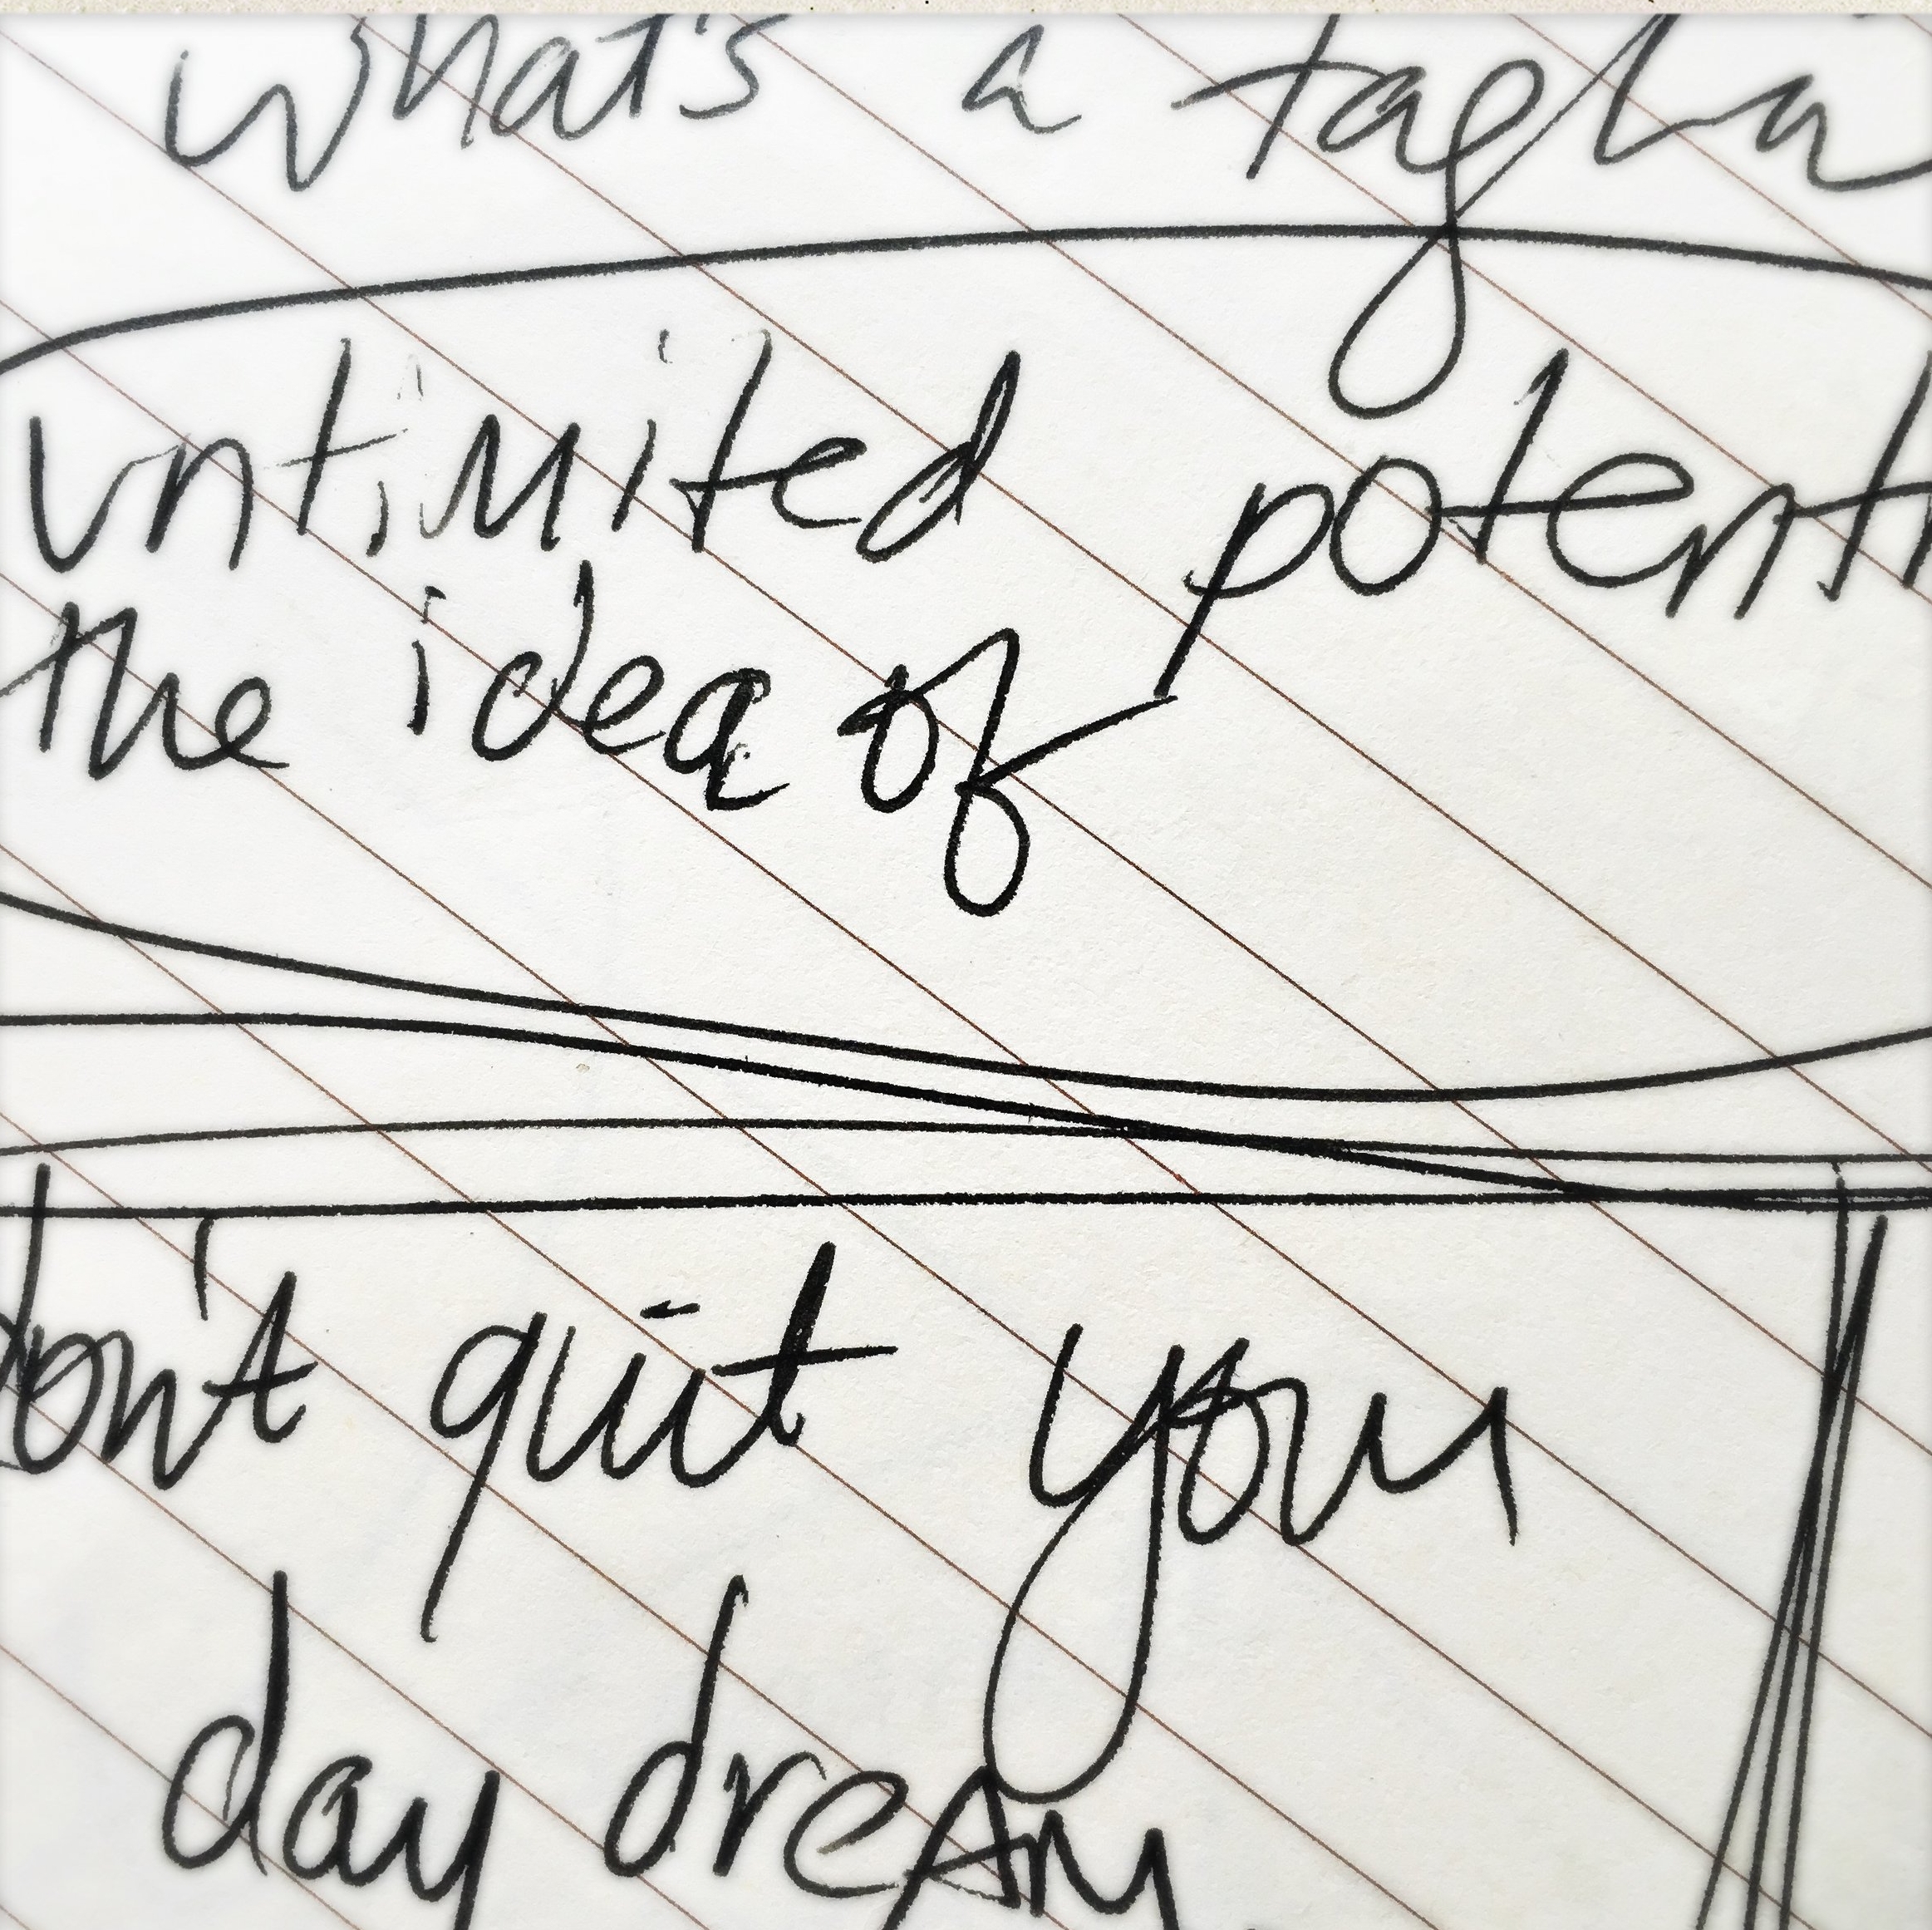 what's a taglin
untimited potenti
the idea of
don't quit you
day dream